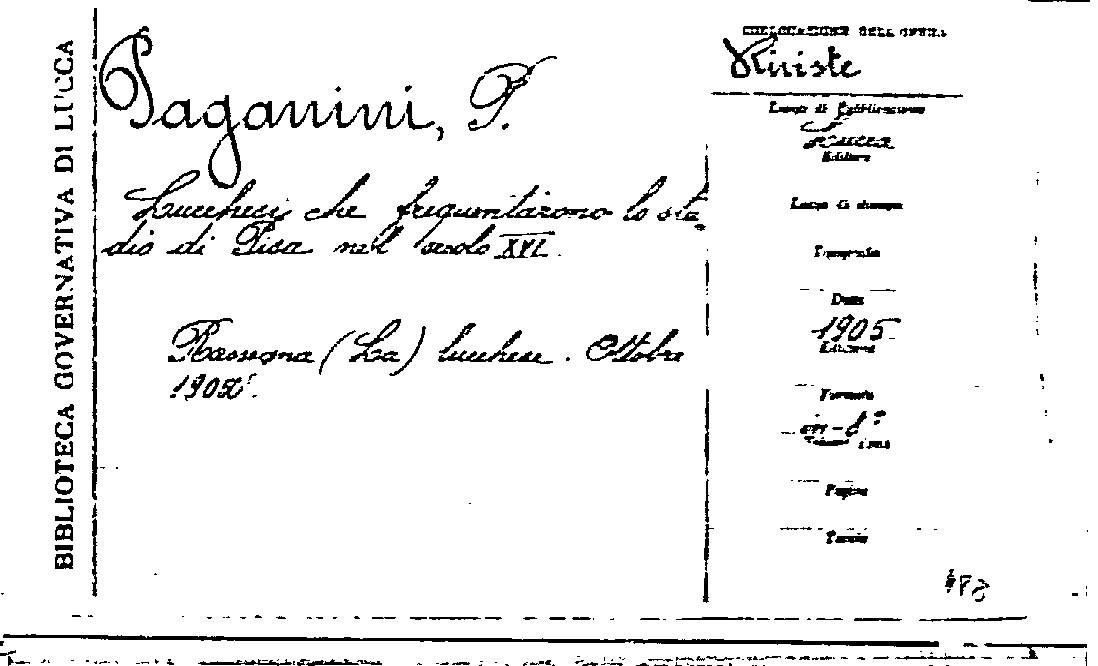 BIBLIOTECA GOVERNATIVA DI LUCCA
Paganini, P.
Lucchesi che frequentarono lo stu
dio di Pisa nel secolo XVI.
Rassegna (La) lucchese. Ottobre
1905
COLLOCAZIONE DELL'OPERA
Riviste
Luogo di Pubblicazione
Lucca
Editore
Luogo di stampa
Tipografia
Data
1905
Edizione
Formato
in-8°
Volumi
Pagine
Tavole